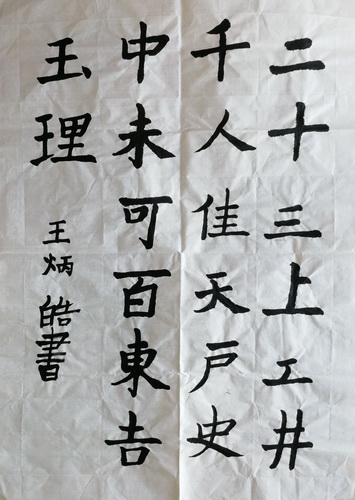 二十三上工井
千人佳天戸史
中未可百東吉
玉理
王炳皓書